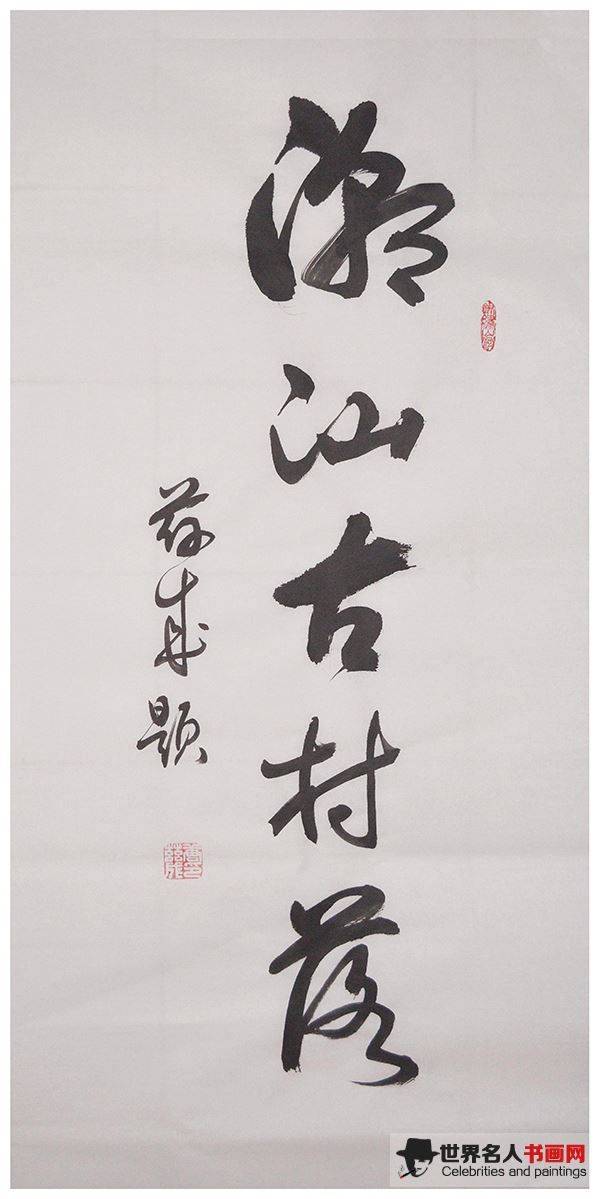 潮汕古村落
兹成题
世界名人书画网
Celebrities and paintings